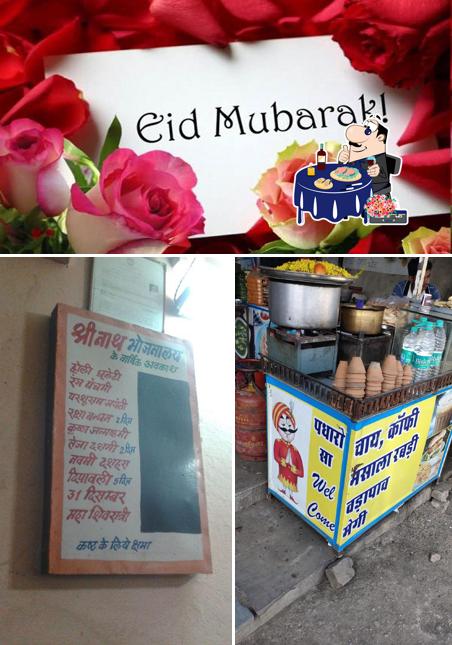 Eid Mubarak!
श्रीनाथ भोजनालय
के वार्षिक अवकाश
होली धुलेटी
रंग पंचमी
परशुराम जयंती
रक्षा बन्धन 2 दिन
कृष्ण जन्माष्टमी
तेजा दशमी 2 दिन
नवमी दशहरा
दिपावली 5 दिन
31 दिसम्बर
महा शिवरात्री
कष्ट के लिये क्षमा
पधारो
सा
Wel
Come
चाय, कॉफी
मसाला रबड़ी
वड़ापाव
मेगी